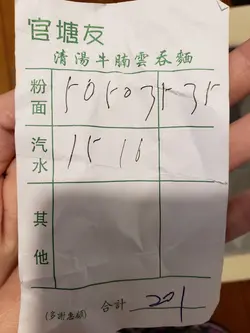 官塘友
清湯牛腩雲吞麵
粉面 50 50 35 35
汽水 15 16
其他
(多謝惠顧) 合計 201